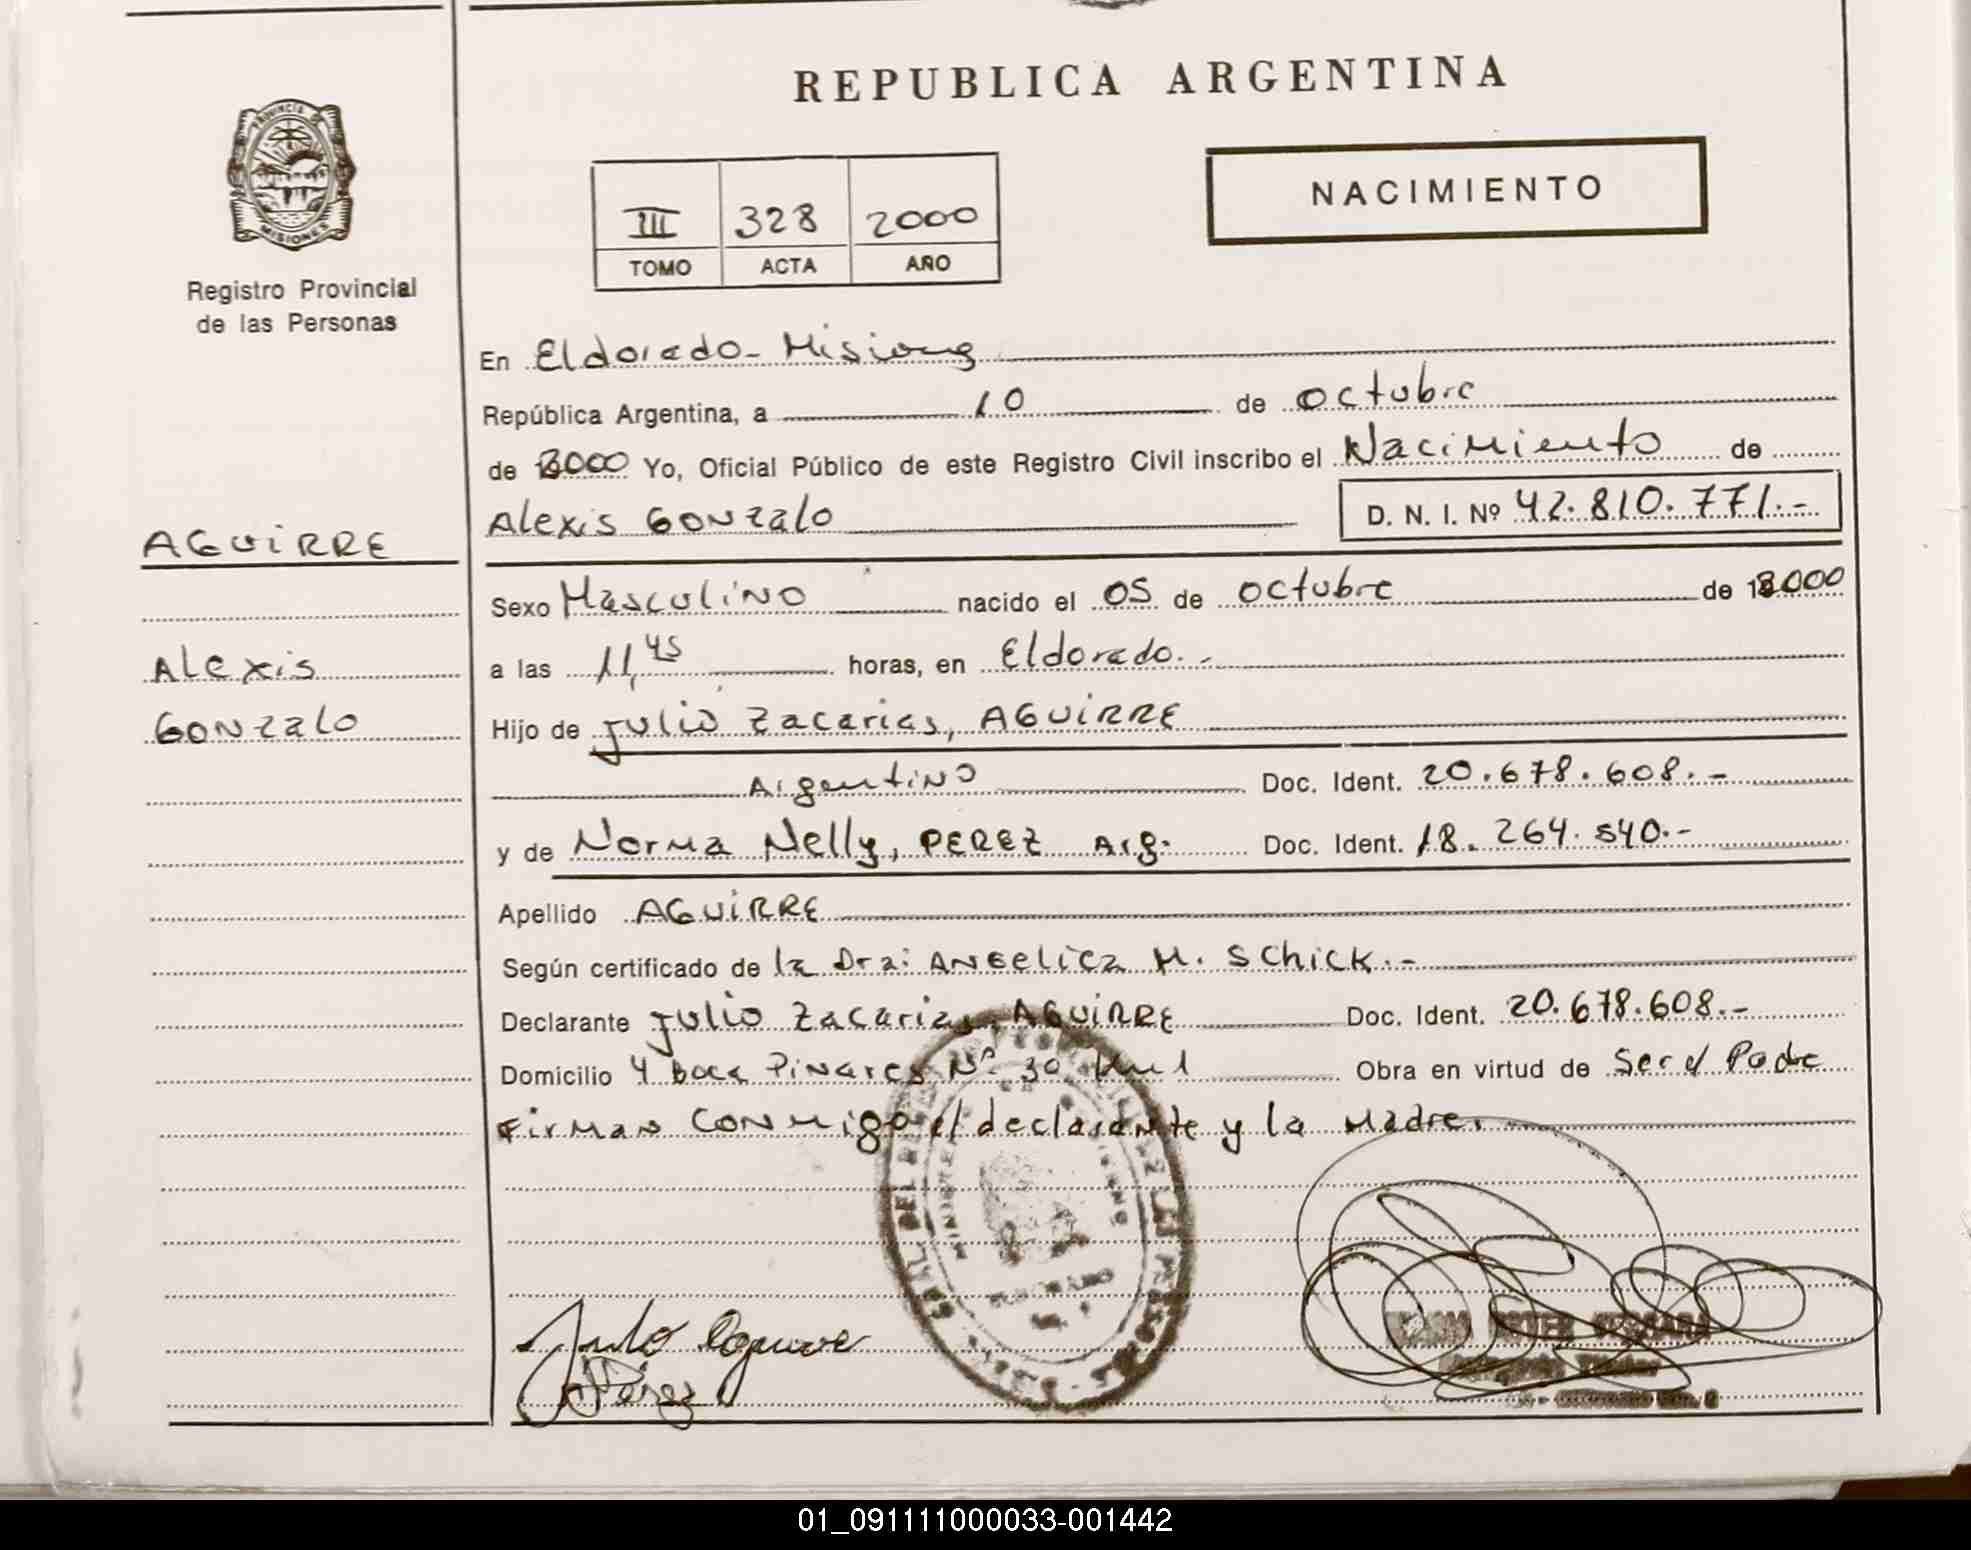 REPUBLICA ARGENTINA
PROVINCIA DE
MISIONES
Registro Provincial
de las Personas
III 328 2000
TOMO ACTA AÑO
NACIMIENTO
En Eldorado - Misiones
República Argentina, a 10 de octubre
de 2000 Yo, Oficial Público de este Registro Civil inscribo el Nacimiento de
Alexis Gonzalo D. N. I. Nº 42.810.771.-
AGUIRRE
Sexo Masculino nacido el 05 de octubre de 2000
a las 11,45 horas, en Eldorado.-
Alexis
Hijo de Julio Zacarias, AGUIRRE
Gonzalo
Argentino Doc. Ident. 20.678.608.-
y de Norma Nelly, PEREZ Arg. Doc. Ident. 18.264.540.-
Apellido AGUIRRE
Según certificado de la Dra: ANGELICA M. SCHICK.-
Declarante Julio Zacarias, AGUIRRE Doc. Ident. 20.678.608.-
Domicilio 4 boca Pinares Nº 30 Km 1 Obra en virtud de Ser el Padre
Firman conmigo el declarante y la Madre.
Julio Aguirre
Perez
01_091111000033-001442